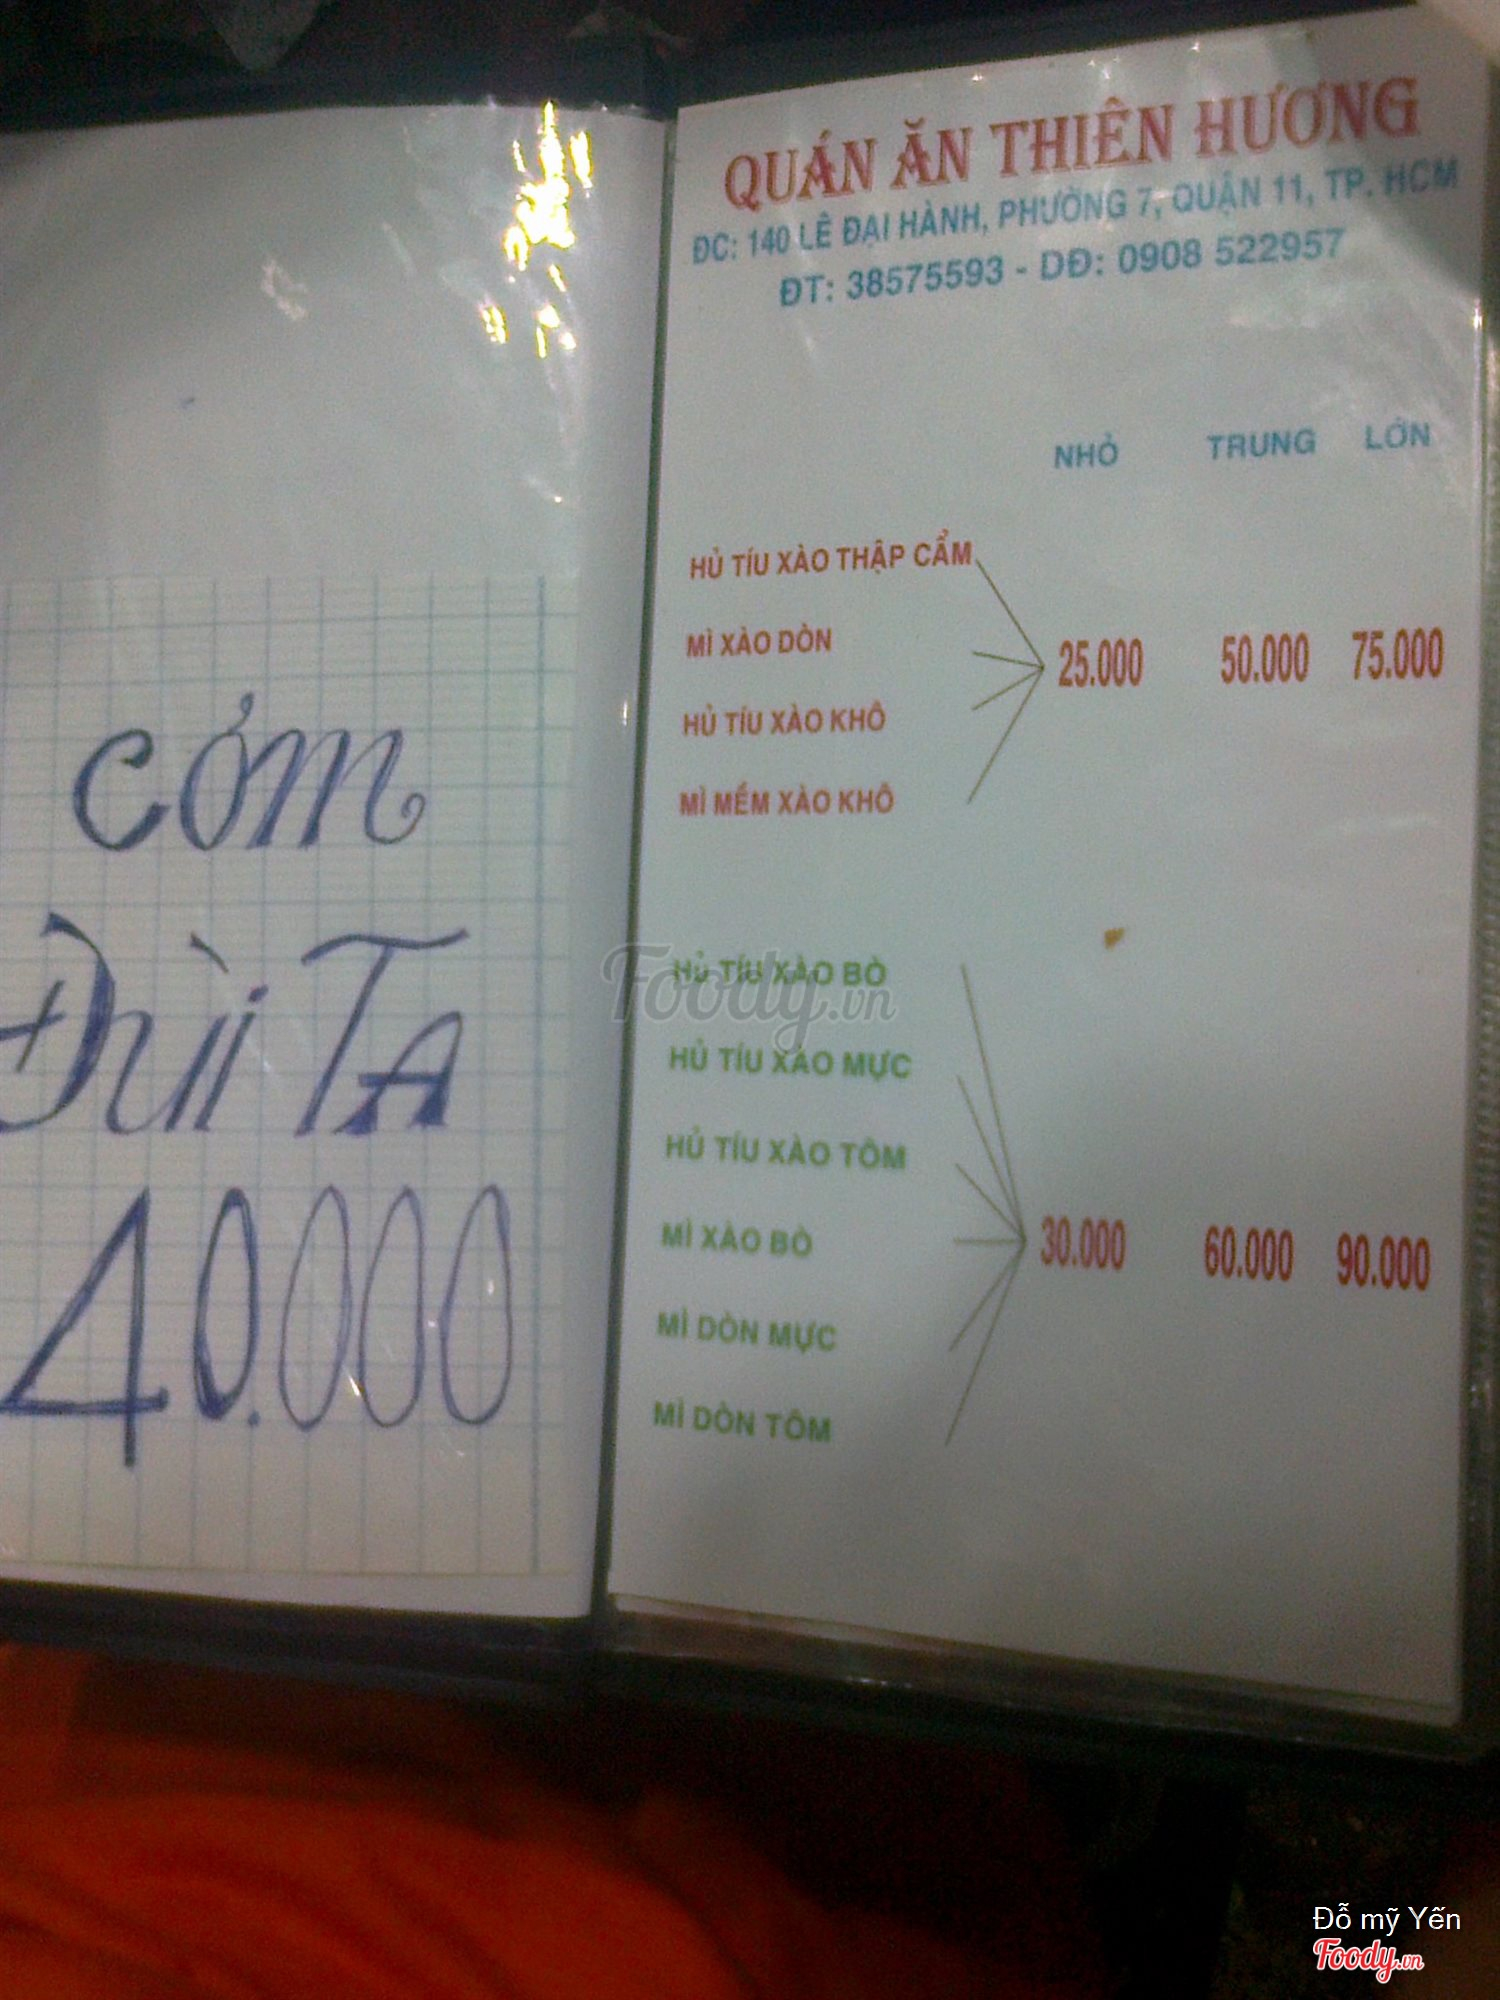 CƠM
ĐÙI TA
40.000
QUÁN ĂN THIÊN HƯƠNG
ĐC: 140 LÊ ĐẠI HÀNH, PHƯỜNG 7, QUẬN 11, TP. HCM
ĐT: 38575593 - DĐ: 0908 522957
NHỎ TRUNG LỚN
HỦ TÍU XÀO THẬP CẨM
MÌ XÀO DÒN
25.000 50.000 75.000
HỦ TÍU XÀO KHÔ
MÌ MỀM XÀO KHÔ
HỦ TÍU XÀO BÒ
HỦ TÍU XÀO MỰC
HỦ TÍU XÀO TÔM
MÌ XÀO BÒ
30.000 60.000 90.000
MÌ DÒN MỰC
MÌ DÒN TÔM
Foody.vn
Đỗ mỹ Yến
Foody.vn